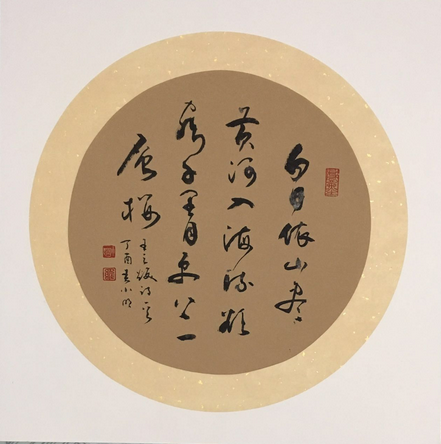 白日依山尽
黄河入海流欲
穷千里目更上一
层楼
王之涣诗一首
丁酉小明